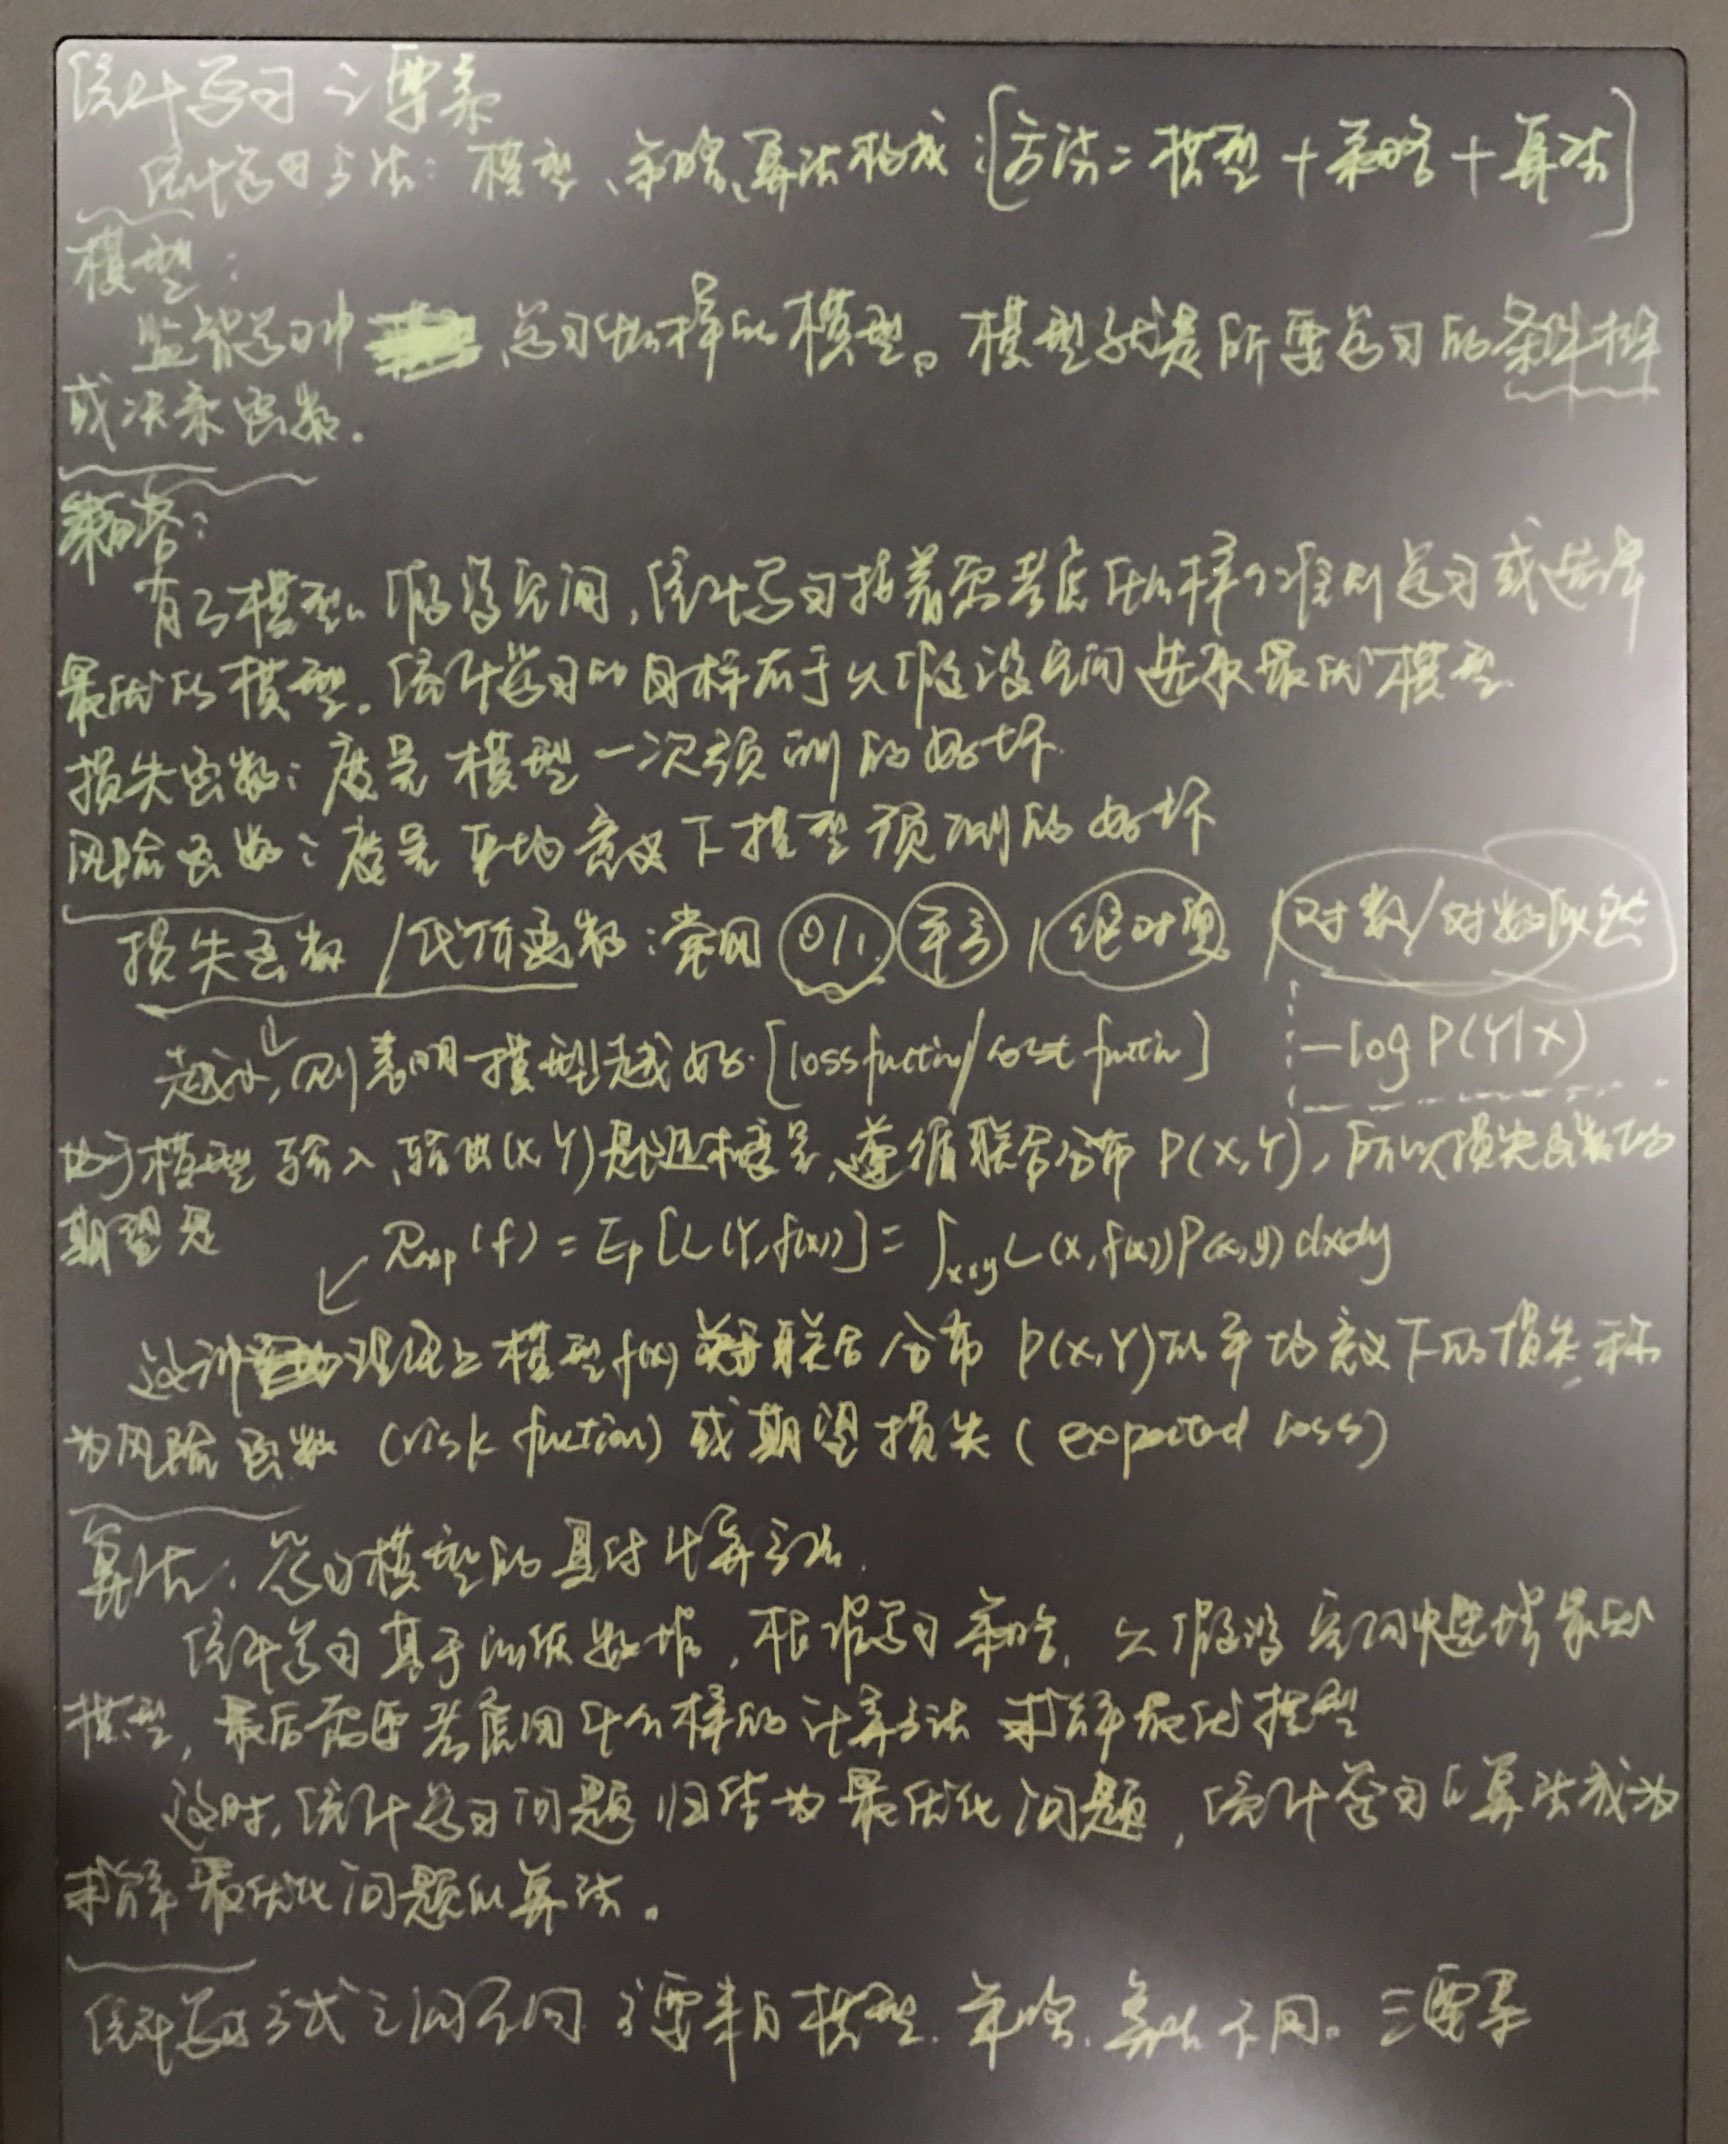 统计学习三要素
统计学习方法：模型、策略、算法构成：[方法=模型+策略+算法]
模型：
监督学习中 学习什么样的模型。模型就是所要学习的条件概率
或决策函数.
策略：
有了模型的假设空间，统计学习接着需考虑什么样的准则学习或选择
最优的模型. 统计学习的目标在于从假设空间选取最优模型.
损失函数：度量模型一次预测的好坏.
风险函数：度量平均意义下模型预测的好坏
损失函数/代价函数：常用 0/1 平方 | 绝对值 | 对数/对数似然
越小，则表明模型越好.[loss fuction/cost fuction] -log P(Y|X)
由于模型输入、输出(X,Y)是随机变量，遵循联合分布P(X,Y)，所以损失函数的
期望是 Rexp(f) = Ep[L(Y,f(x))] = ∫x×y L(x,f(x))P(x,y)dxdy
这就 理论上模型f(x)关于联合分布P(X,Y)的平均意义下的损失，称
为风险函数 (risk fuction) 或期望损失 (expected loss)
算法：学习模型的具体计算方法.
统计学习基于训练数据，根据学习策略，从假设空间中选择最优
模型，最后需要考虑用什么样的计算方法求解最优模型
这时，统计学习问题归结为最优化问题，统计学习的算法成为
求解最优化问题的算法。
统计学习方式之间不同 主要来自模型、策略、算法不同。三要素